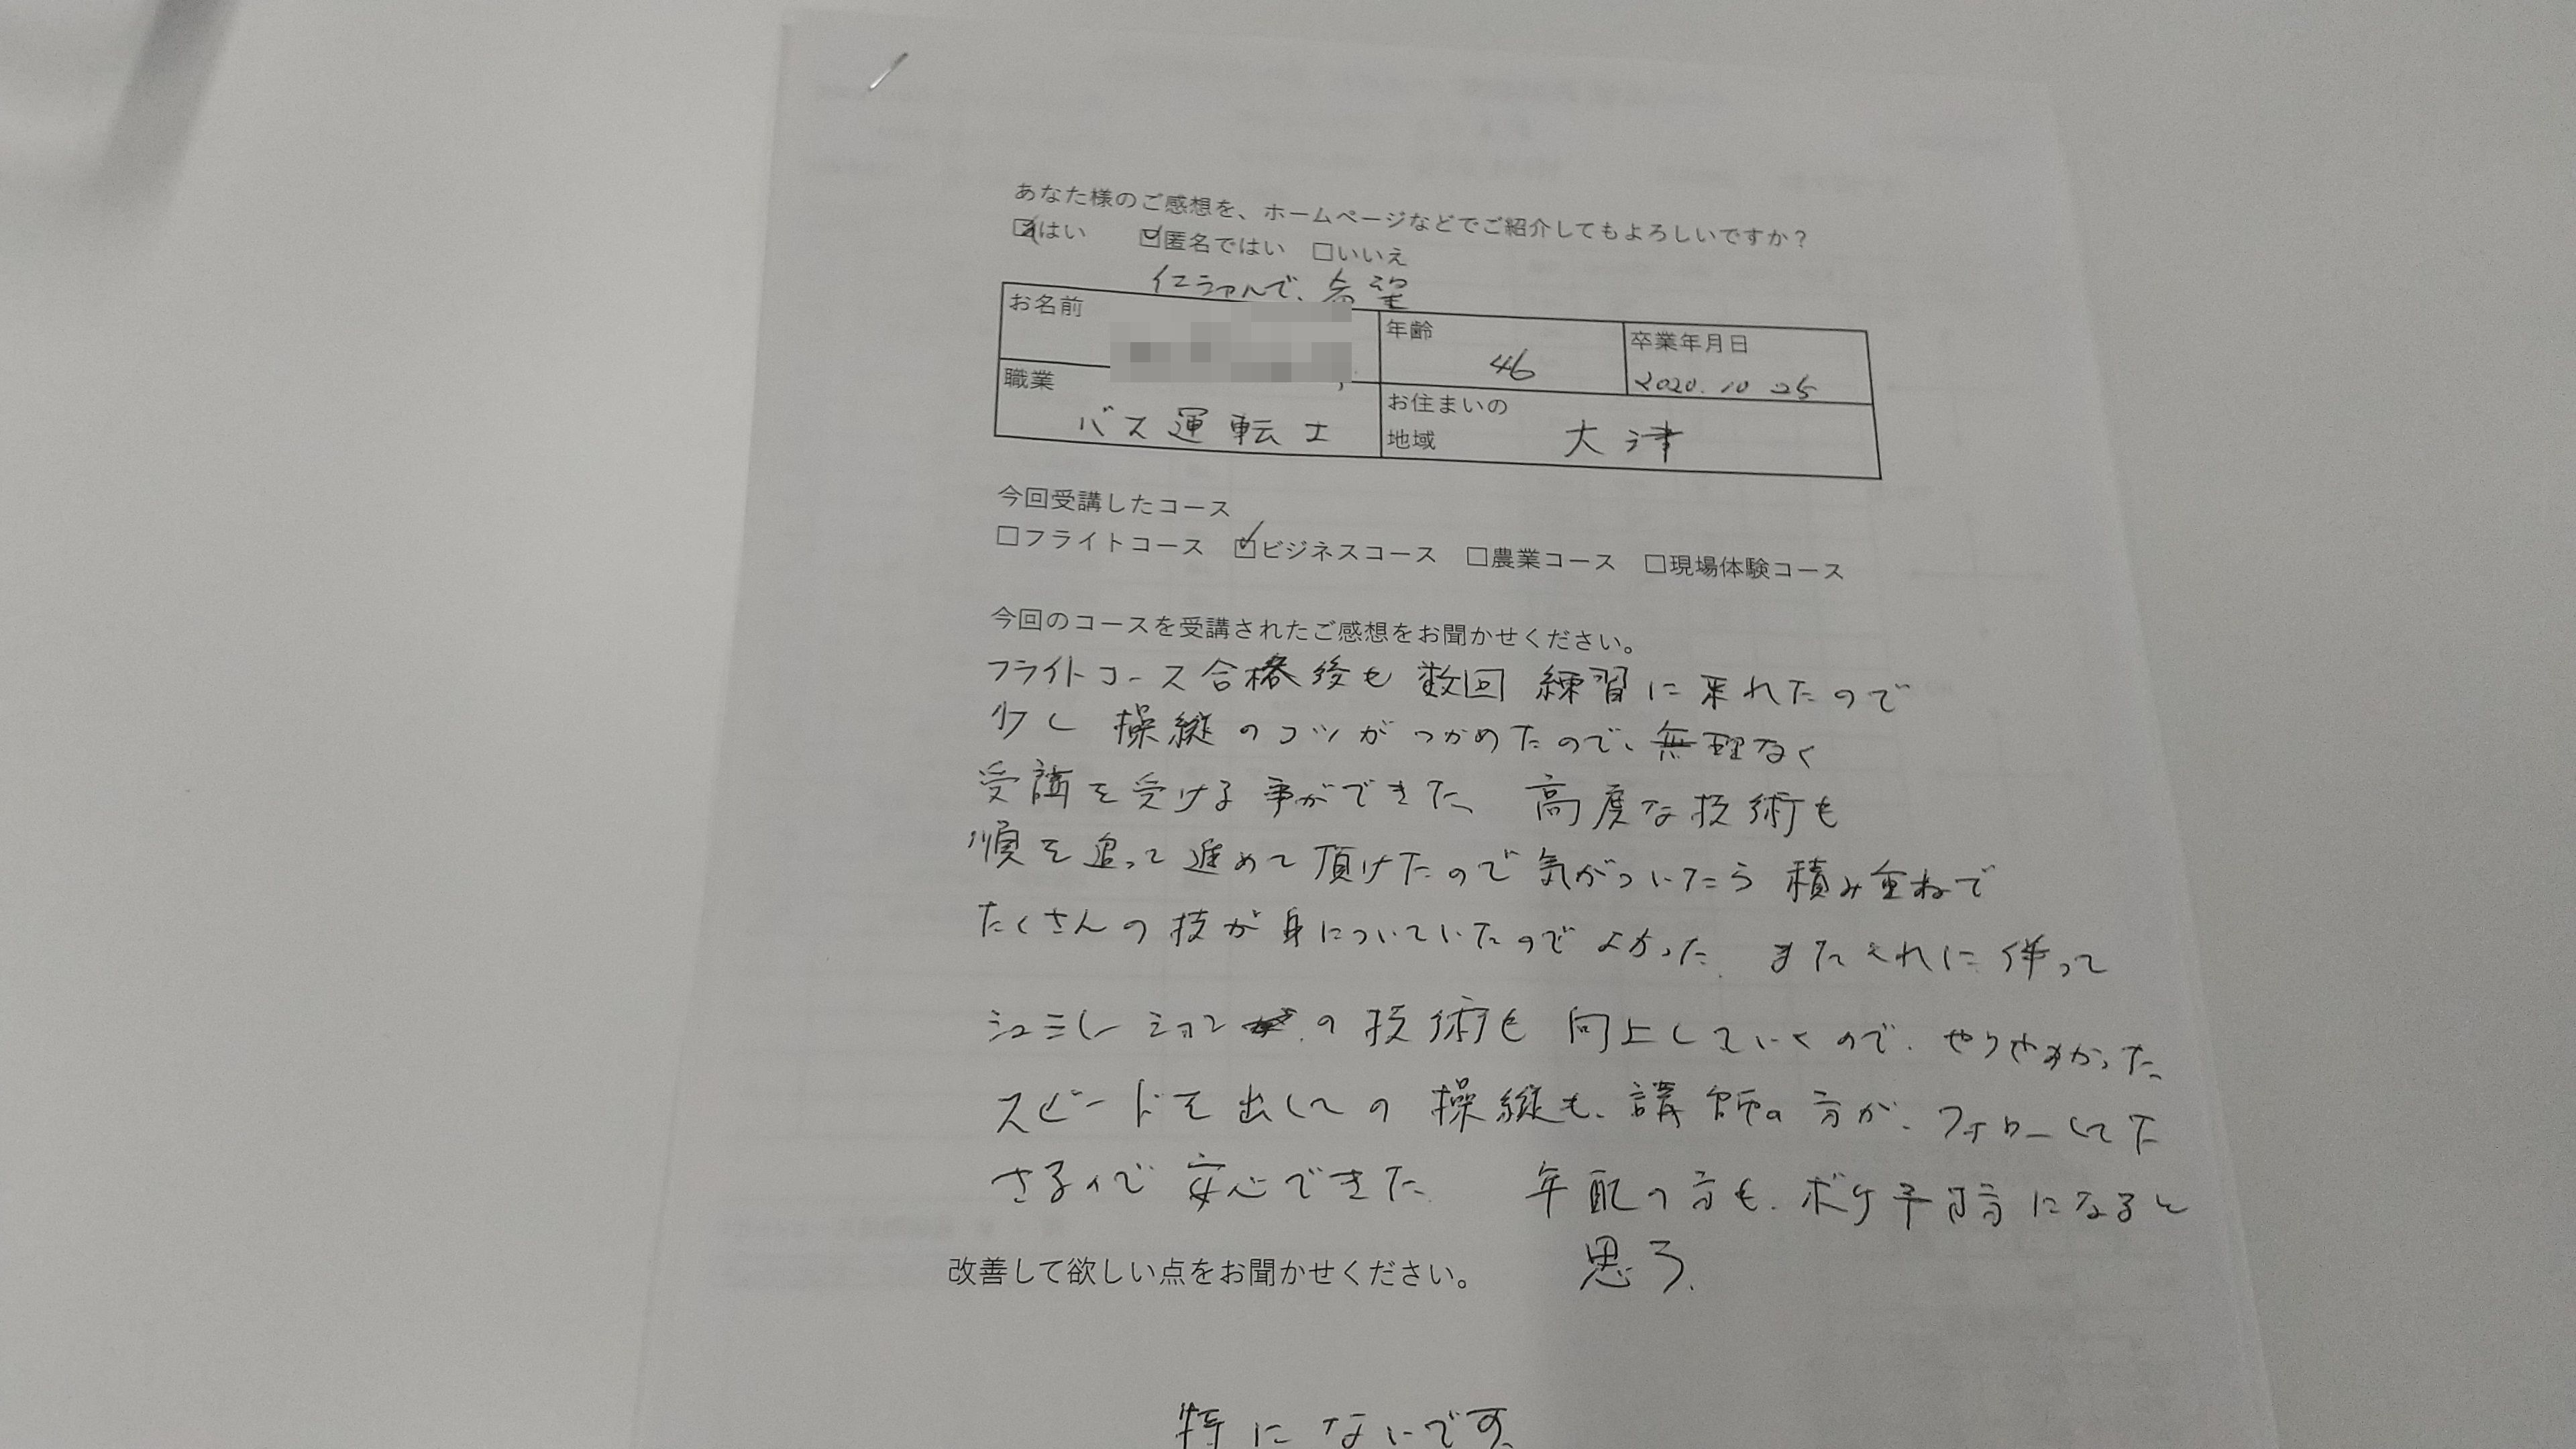 あなた様のご感想を、ホームページなどでご紹介してもよろしいですか？
☑はい ☑匿名ではい □いいえ
イニシャルで、希望
お名前
年齢
46
卒業年月日
2020.10 25
職業
バス運転士
お住まいの
地域
大津
今回受講したコース
□フライトコース ☑ビジネスコース □農業コース □現場体験コース
今回のコースを受講されたご感想をお聞かせください。
フライトコース合格後も数回練習に来れたので
少し操縦のコツがつかめたので、無理なく
受講を受ける事ができた、高度な技術も
順を追って進めて頂けたので気がついたら積み重ねで
たくさんの技が身についていたのでよかった。またそれに伴って
シュミレーションの技術も向上していくので、やりやすかった
スピードを出しての操縦も、講師の方が、フォローしてた
さるので安心できた 年配の方も、ボケ予防になると
思う.
改善して欲しい点をお聞かせください。
特にないです